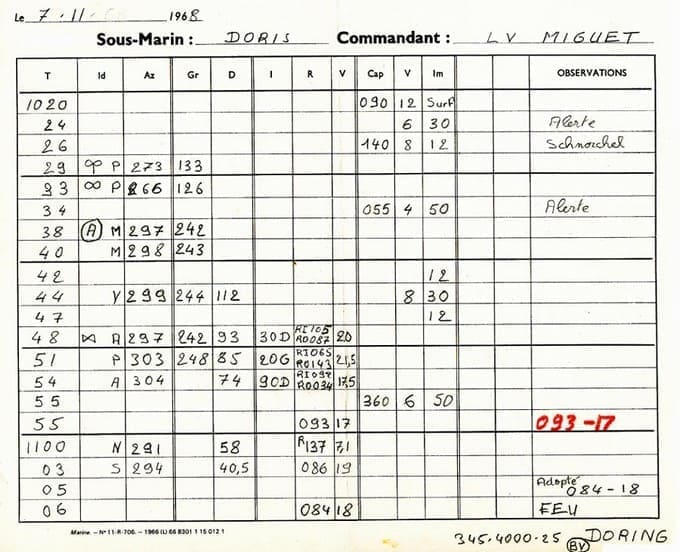 Le 7.11. 1968
Sous-Marin : DORIS Commandant : LV MIGUET
T Id Az Gr D I R V Cap V Im OBSERVATIONS
1020 090 12 Surf
24 6 30 Alerte
26 140 8 12 Schnorchel
29 P 273 133
33 ∞ P 266 126
34 055 4 50 Alerte
38 A M 297 242
40 M 298 243
42 12
44 Y 299 244 112 8 30
47 12
48 ⋈ A 297 242 93 30D RI105 RO087 20
51 P 303 248 85 20G RI065 RO143 21,5
54 A 304 74 90D RI092 RO034 17,5
55 360 6 50
55 093 17 093-17
1100 N 291 58 R137 7,1
03 S 294 40,5 086 19
05 Adopté 084-18
06 084 18 EEU
Marine. – N° 11-R-706. – 1966 (L) 66 8301 1 15 012 1
345.4000.25 BV DORING